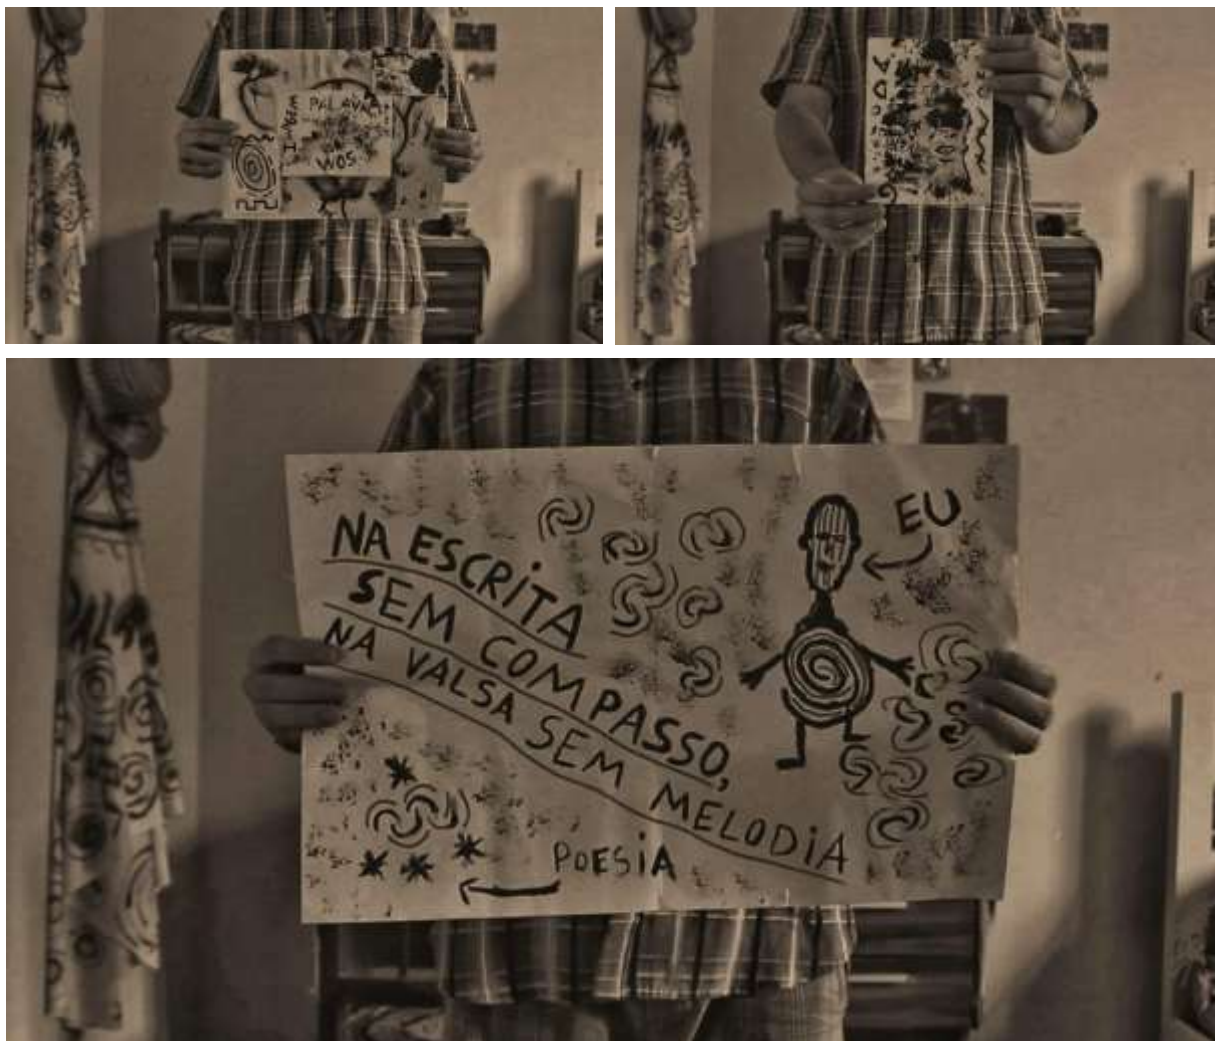 IMAGEM
PALAVRA
WOS
EU
NA ESCRITA
SEM COMPASSO,
NA VALSA SEM MELODIA
POESIA